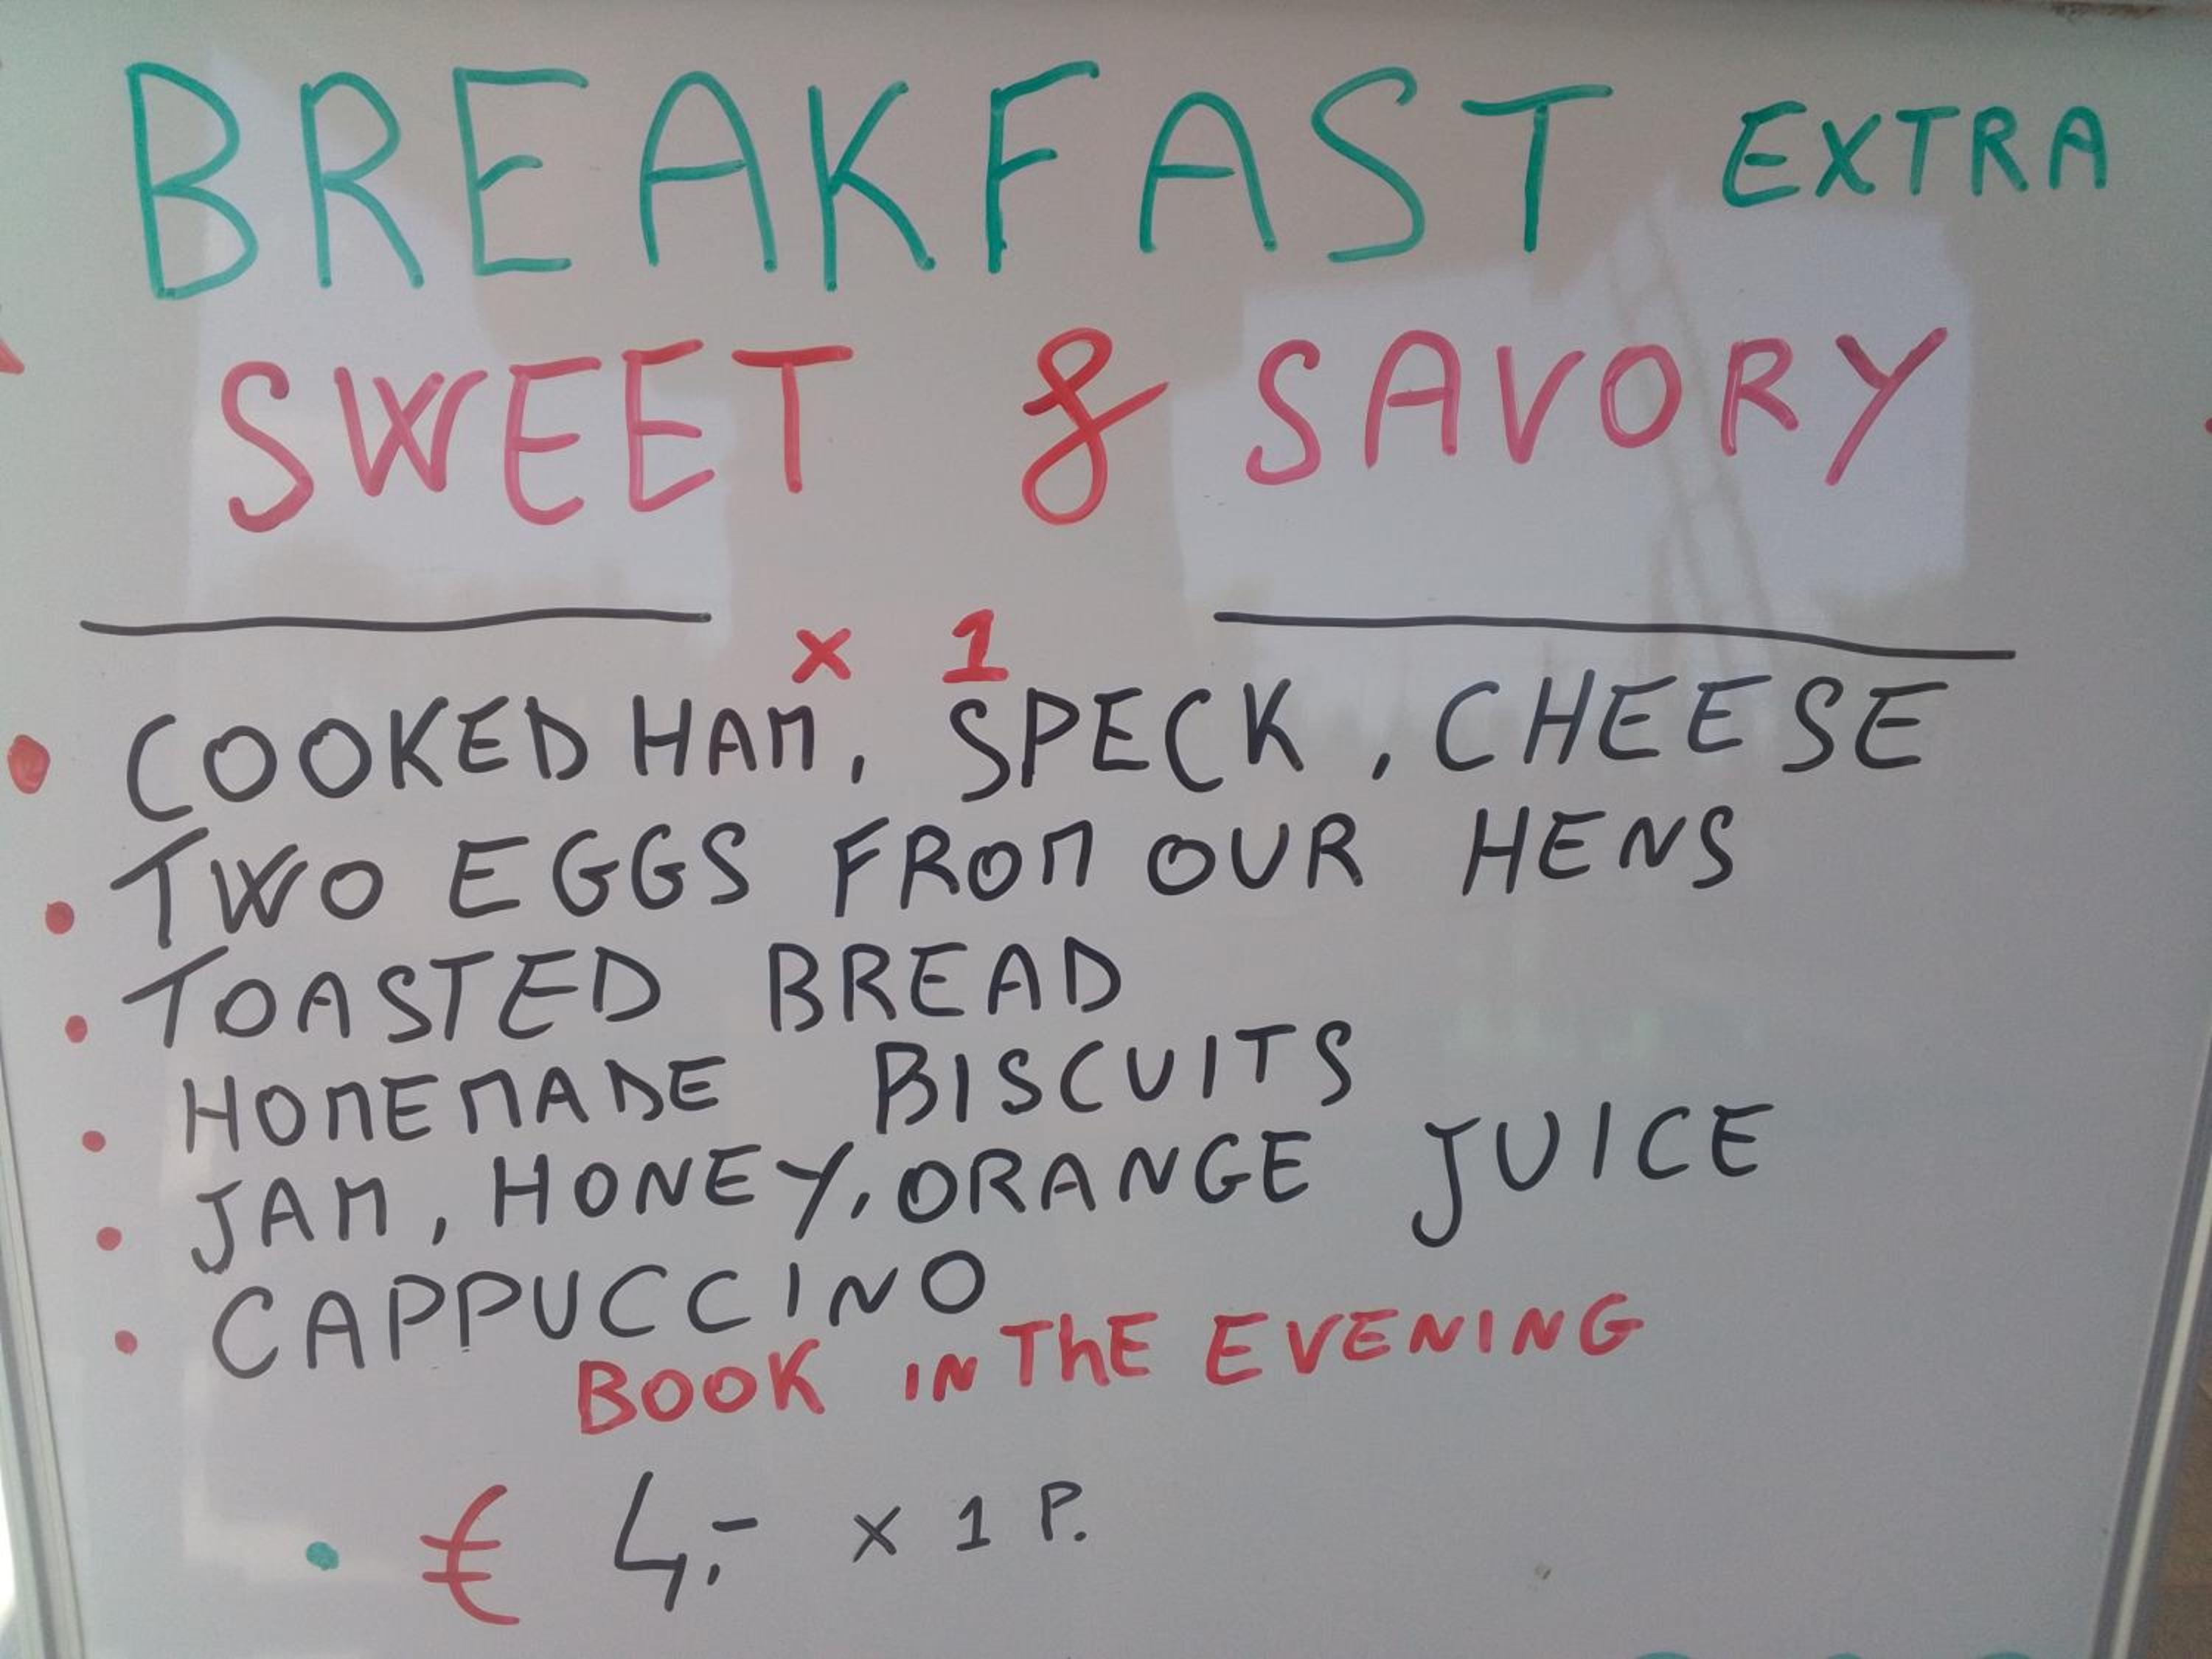 BREAKFAST EXTRA
SWEET & SAVORY
x 1
• COOKED HAM, SPECK, CHEESE
• TWO EGGS FROM OUR HENS
• TOASTED BREAD
• HOMEMADE BISCUITS
• JAM, HONEY, ORANGE JUICE
• CAPPUCCINO
BOOK IN THE EVENING
• € 4,- x 1 P.